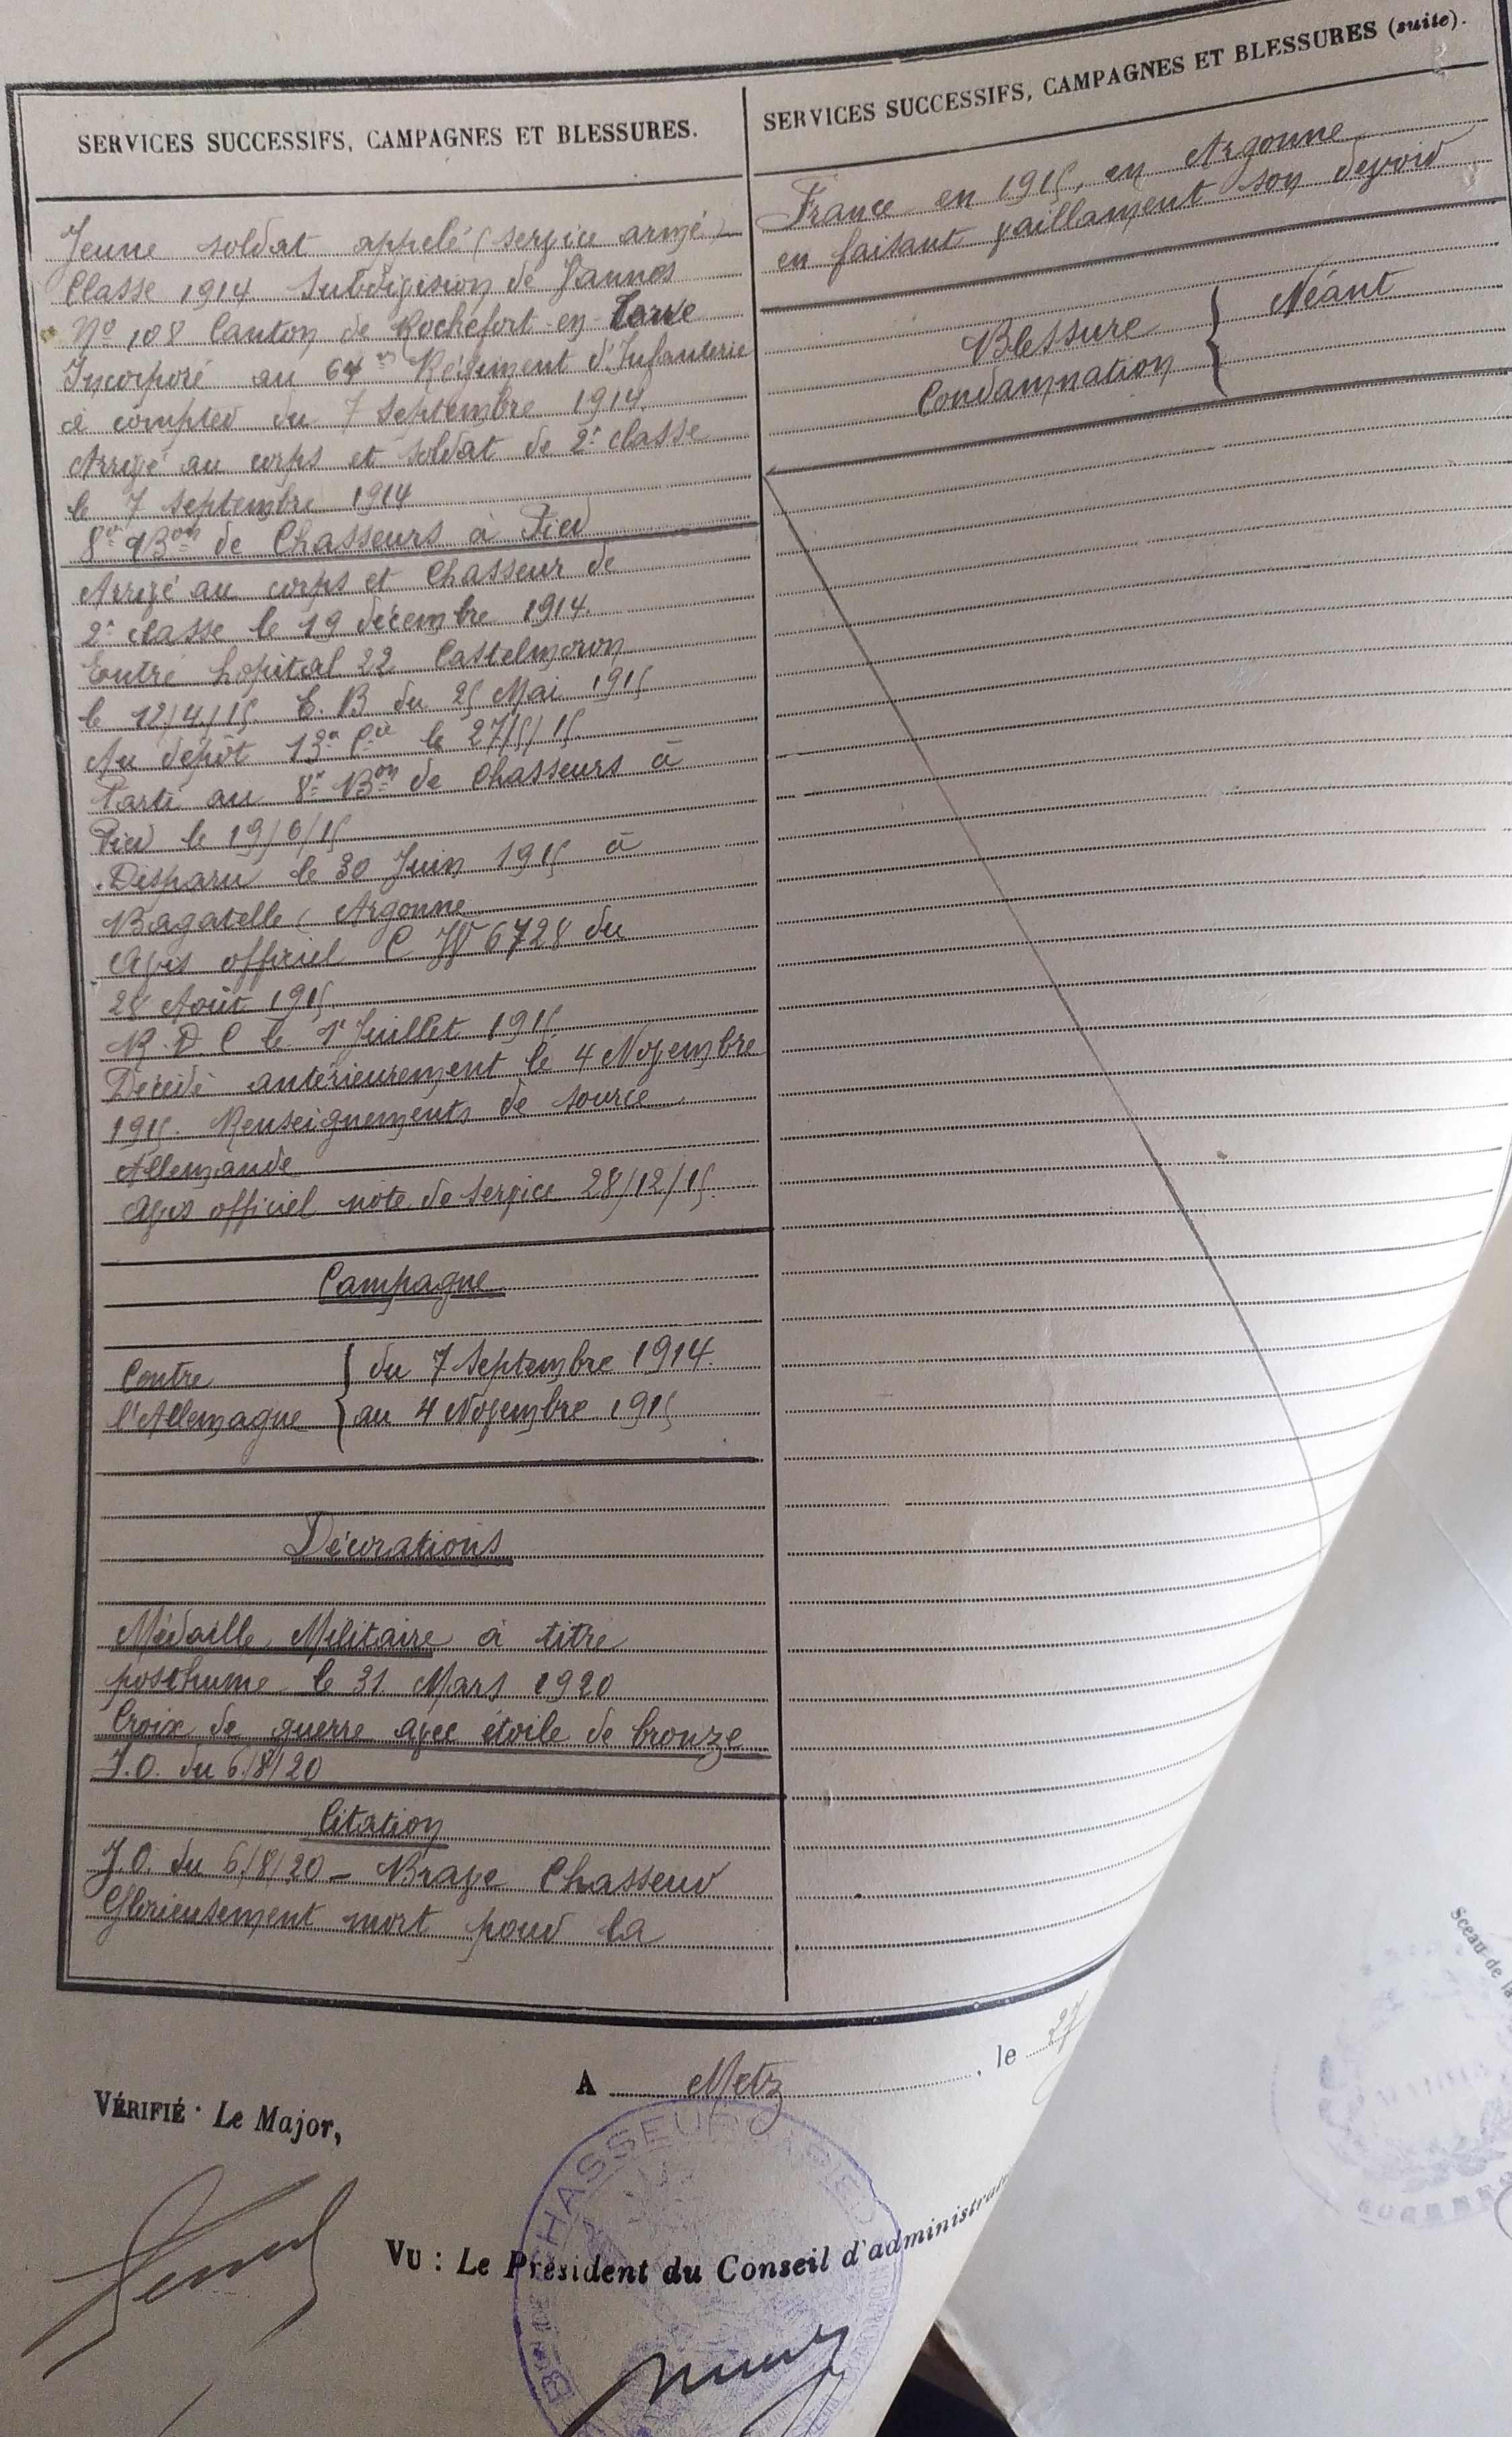 SERVICES SUCCESSIFS, CAMPAGNES ET BLESSURES.
Jeune soldat appelé (service armé)
Classe 1914 Subdivision de Vannes
No 108 Canton de Rochefort-en-Terre
Incorporé au 64e Régiment d'Infanterie
à compter du 7 Septembre 1914.
Arrivé au corps et soldat de 2e classe
le 7 Septembre 1914
8e Bon de Chasseurs à Pied
Arrivé au corps et Chasseur de
2e classe le 19 décembre 1914.
Entré hôpital 22 Castelmoron
le 12/4/15. E. B du 25 Mai 1915
Au dépôt 13e Cie le 27/5/15.
Parti au 8e Bon de Chasseurs à
Pied le 19/6/15
Disparu le 30 Juin 1915 à
Bagatelle (Argonne
Avis officiel C 6728 du
28 Août 1915
R. D. C le 1r Juillet 1915
Décédé antérieurement le 4 Novembre
1915. Renseignements de source
Allemande
Avis officiel note de service 28/12/15.
Campagne
Contre { du 7 Septembre 1914.
l'Allemagne { au 4 Novembre 1915
Décorations
Médaille Militaire à titre
posthume le 31 Mars 1920
Croix de guerre avec étoile de bronze
J.O. du 6/8/20
Citation
J.O. du 6/8/20 - Brave Chasseur
Glorieusement mort pour la
SERVICES SUCCESSIFS, CAMPAGNES ET BLESSURES (suite).
France en 1915, en Argonne
en faisant vaillament son devoir
Blessure } Néant
Condamnation
A Metz, le 27
VÉRIFIÉ : Le Major,
VU : Le Président du Conseil d'administrat
CHASSEURS A PIED
Sceau de la